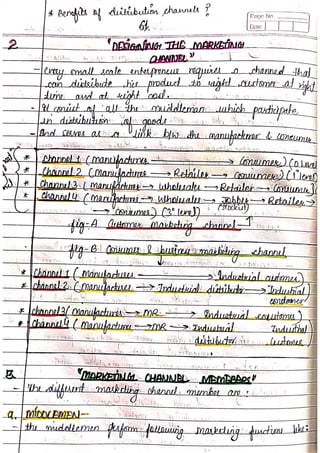 * Benefits of distribution channels ?
Page No.
Date
2. "DESIGNING THE MARKETING
CHANNEL"
- Every small scale entrepreneur requires a channel that
can distribute his product to right customer at right
time and at right cost.
- It consist of all the middleman which participate
in distribution of goods
- And serves as a link b/w the manufacturer & consumer
* Channel 1 (manufacturer → consumer) (0 level)
* Channel 2 (manufacturer → Retailer → consumer) (1° level)
* Channel 3 (manufacturer → wholesaler → Retailer → consumer)
* Channel 4 (manufacturer → wholesaler → Jobber → Retailer →
→ consumer) (3° level)
fig-A Customer marketing channel
fig-B Consumer & business marketing channel
* Channel 1 (manufacturer → Industrial customer)
* Channel 2 (manufacturer → Industrial distributor → Industrial
customer)
* Channel 3 (manufacturer → MR → Industrial customer)
* Channel 4 (manufacturer → MR → Industrial Industrial
distributor customer)
B. "MARKETING CHANNEL MEMBERS"
- The different marketing channel member are :
a. MIDDLEMEN -
- the middlemen perform following marketing function like: